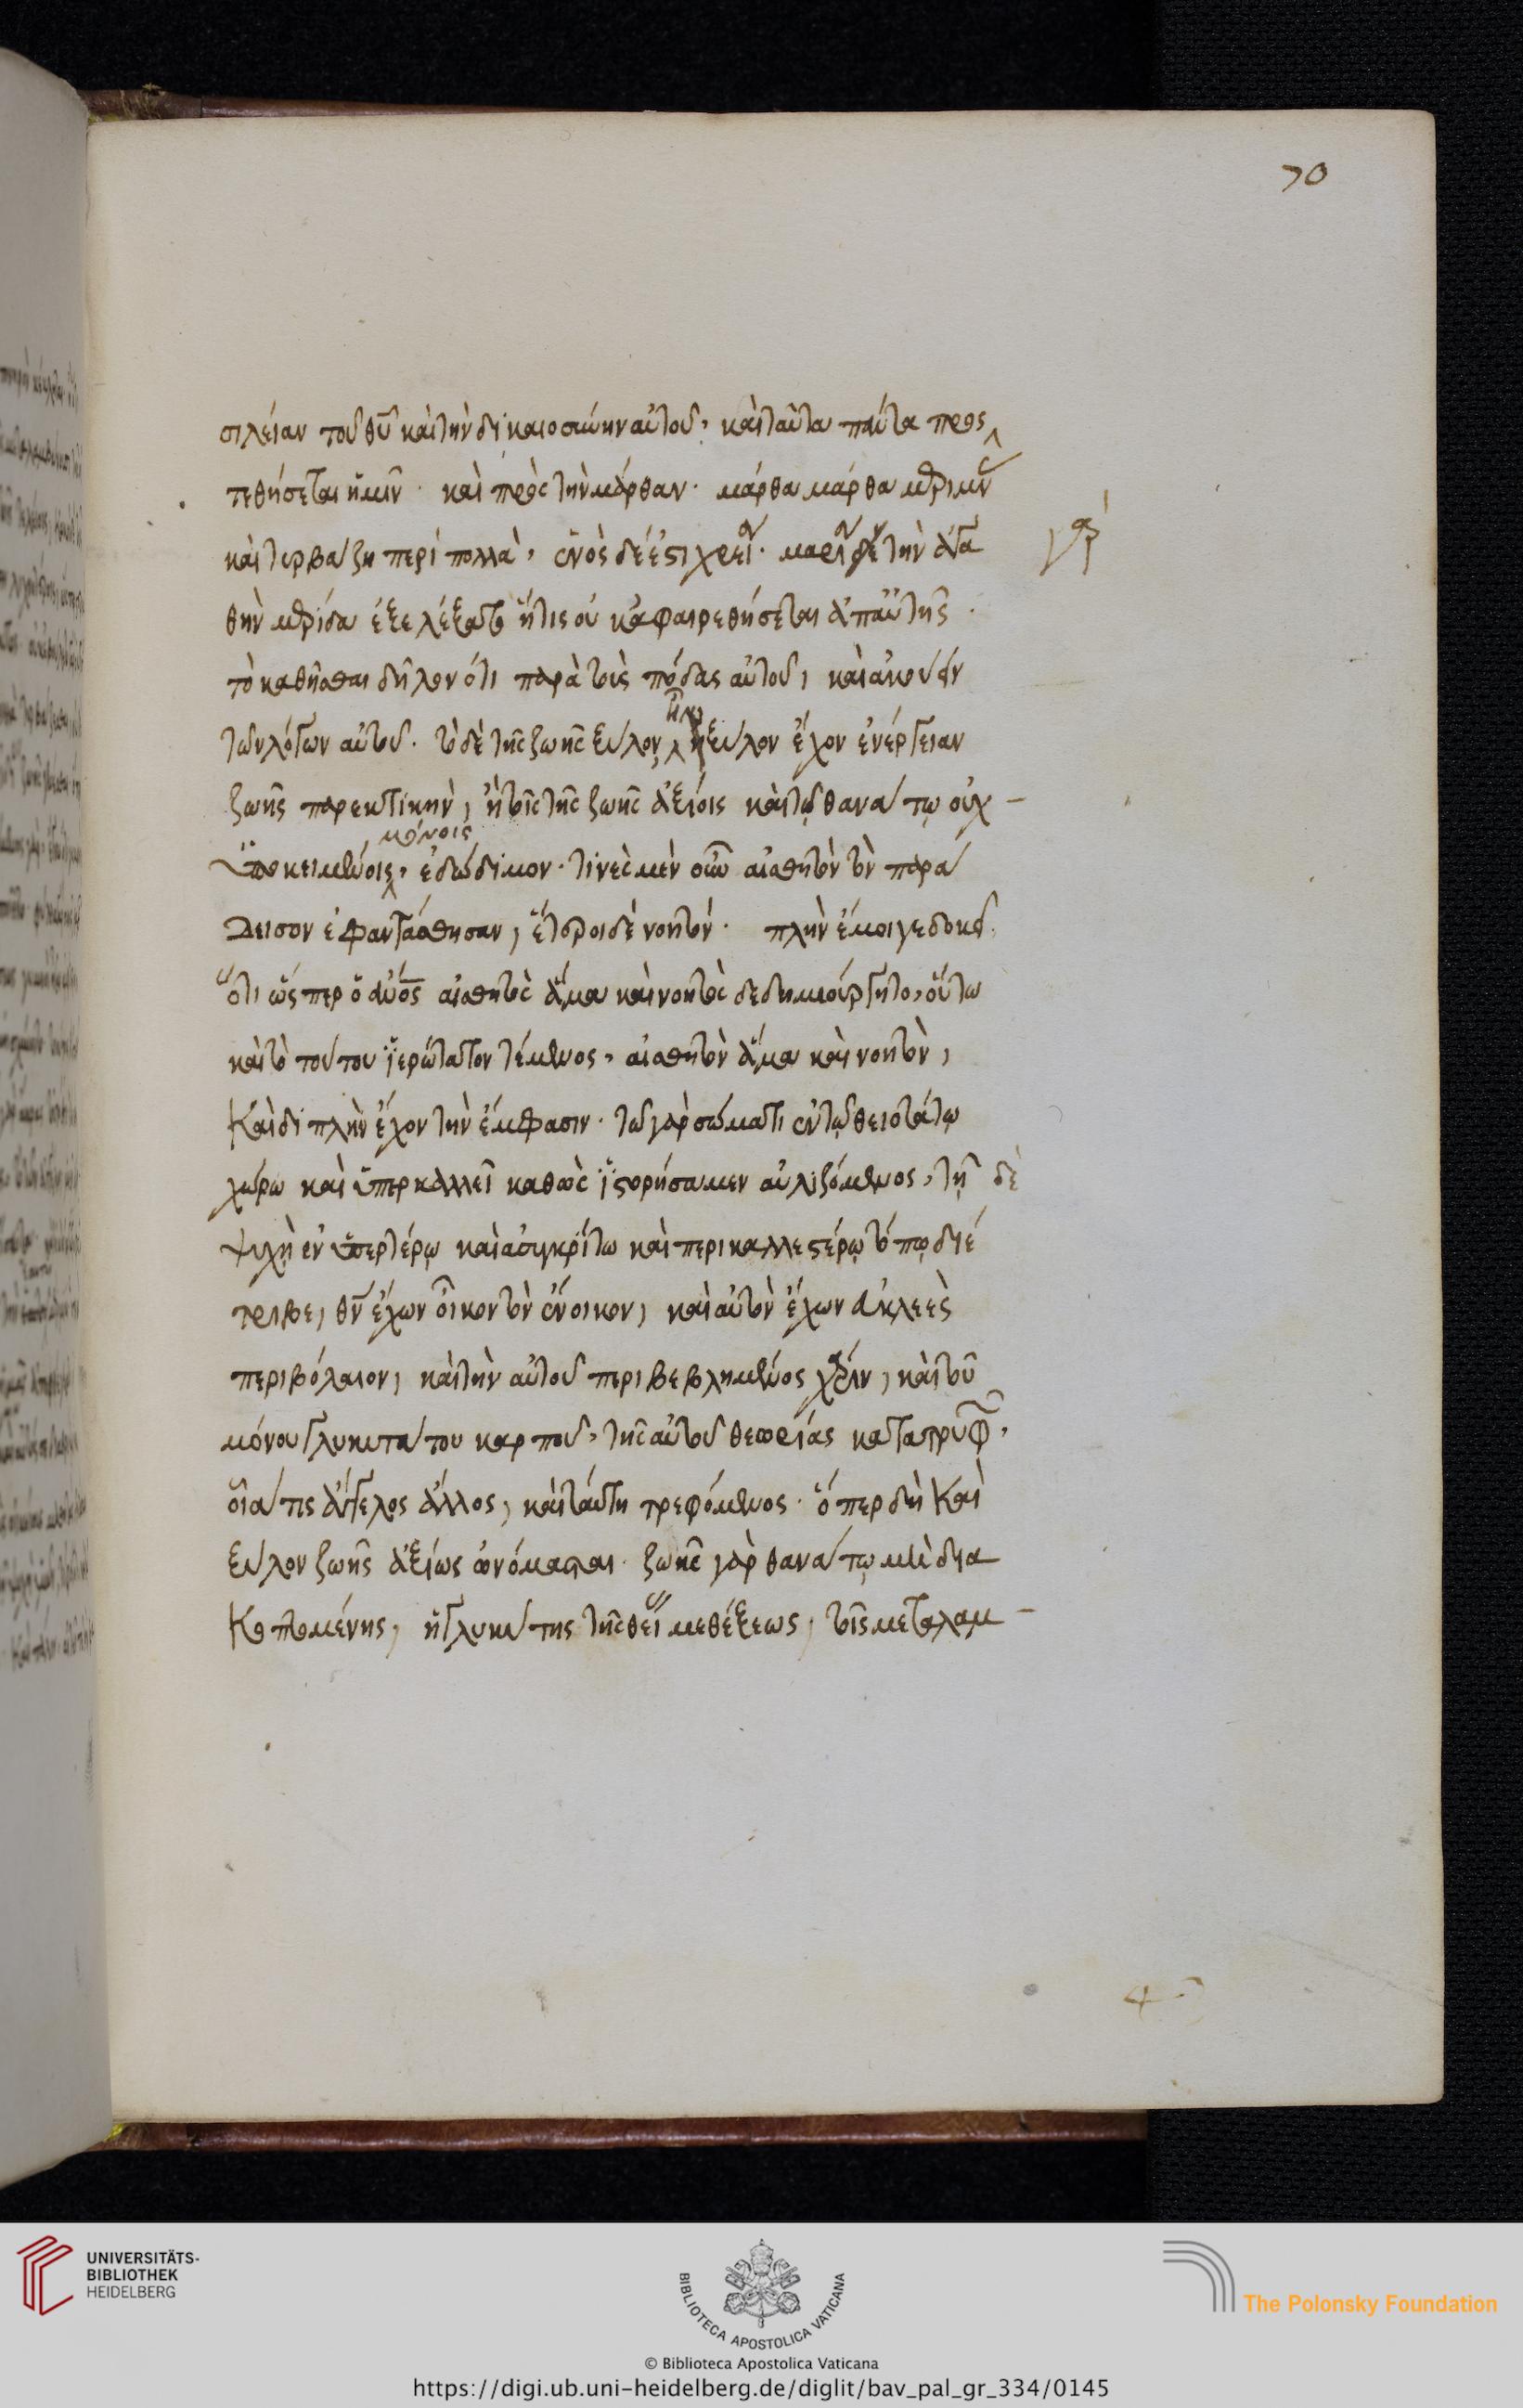 70
σιλείαν τοῦ θῦ καὶ τὴν δικαιοσύνην αὐτοῦ, καὶ ταῦτα πάντα προς
τεθήσεται ἡμῖν. καὶ πρὸς τὴν μάρθαν. μάρθα μάρθα μεριμνᾶς
καὶ τυρβάζη περὶ πολλὰ, ἑνὸς δέ ἐστι χρεία. μαρία δὲ τὴν ἀγα
θὴν μερίδα ἐξελέξατο ἥτις οὐκ ἀφαιρεθήσεται ἀπ αὐτῆς.
τὸ καθῆσθαι δῆλον ὅτι παρὰ τοὺς πόδας αὐτοῦ, καὶ ἀκούειν
τῶν λόγων αὐτοῦ. τὸ δὲ τῆς ζωῆς ξύλον, ἢ ξύλον ἔχον ἐνέργειαν
ζωῆς παρεκτικὴν, ἢ τοῖς τῆς ζωῆς ἀξίοις καὶ τῷ θανάτῳ οὐχ -
μόνοις
ὑποκειμένοις, ἐδώδιμον. τινὲς μὲν οὖν αἰσθητὸν τὸν παρά
δεισον ἐφαντάσθησαν, ἕτεροι δὲ νοητόν. πλὴν ἔμοιγε δοκεῖ,
ὅτι ὥσπερ ὁ ἀνος αἰσθητὸς ἅμα καὶ νοητὸς δεδημιούργητο, οὕτω
καὶ τὸ τούτου ἱερώτατον τέμενος, αἰσθητὸν ἅμα καὶ νοητὸν,
καὶ διπλὴν ἔχον τὴν ἔμφασιν. τῶ γὰρ σώματι ἐν τῷ θειοτάτῳ
χώρω καὶ ὑπερκαλλεῖ καθὼς ἱστορήσαμεν αὐλιζόμενος, τῇ δὲ
ψυχῇ ἐν ὑπερτέρῳ καὶ ἀσυγκρίτω καὶ περικαλλεστέρῳ τόπῳ διέ
τριβε, θν ἔχων οἶκον τὸν ἔνοικον, καὶ αὐτὸν ἔχων εὐκλεὲς
περιβόλαιον, καὶ τὴν αὐτοῦ περιβεβλημένος χάριν, καὶ τοῦ
μόνου γλυκυτάτου καρποῦ, τῆς αὐτοῦ θεωρίας κατατρυφῶν,
οἷά τις ἄγγελος ἄλλος, καὶ ταύτη τρεφόμενος. ὅπερ δὴ καὶ
ξύλον ζωῆς ἀξίως ὠνόμασται. ζωῆς γὰρ θανάτῳ μὴ δια
κοπτομένης, ἡ γλυκύτης τῆς θείας μεθέξεως, τοῖς μεταλαμ -
UNIVERSITÄTS-
BIBLIOTHEK
HEIDELBERG
BIBLIOTECA APOSTOLICA VATICANA
The Polonsky Foundation
© Biblioteca Apostolica Vaticana
https://digi.ub.uni-heidelberg.de/diglit/bav_pal_gr_334/0145